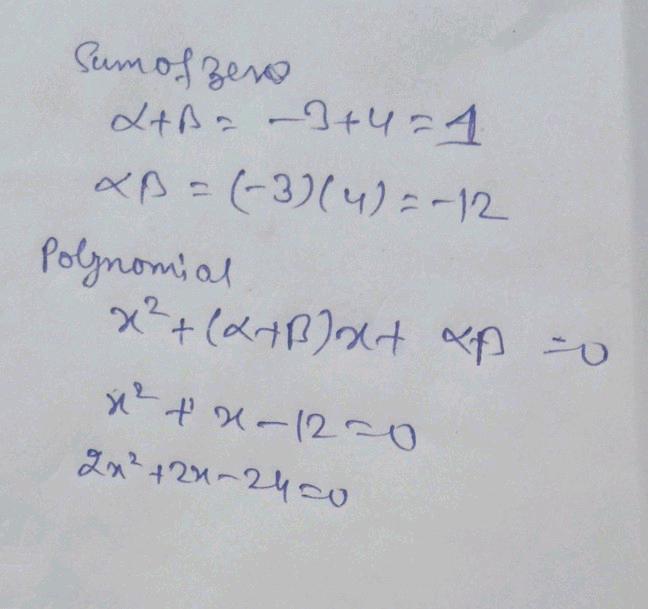 Sum of zero
α+β = -3+4 = 1
αβ = (-3)(4) = -12
Polynomial
x² + (α+β)x + αβ = 0
x² + x - 12 = 0
2x² + 2x - 24 = 0